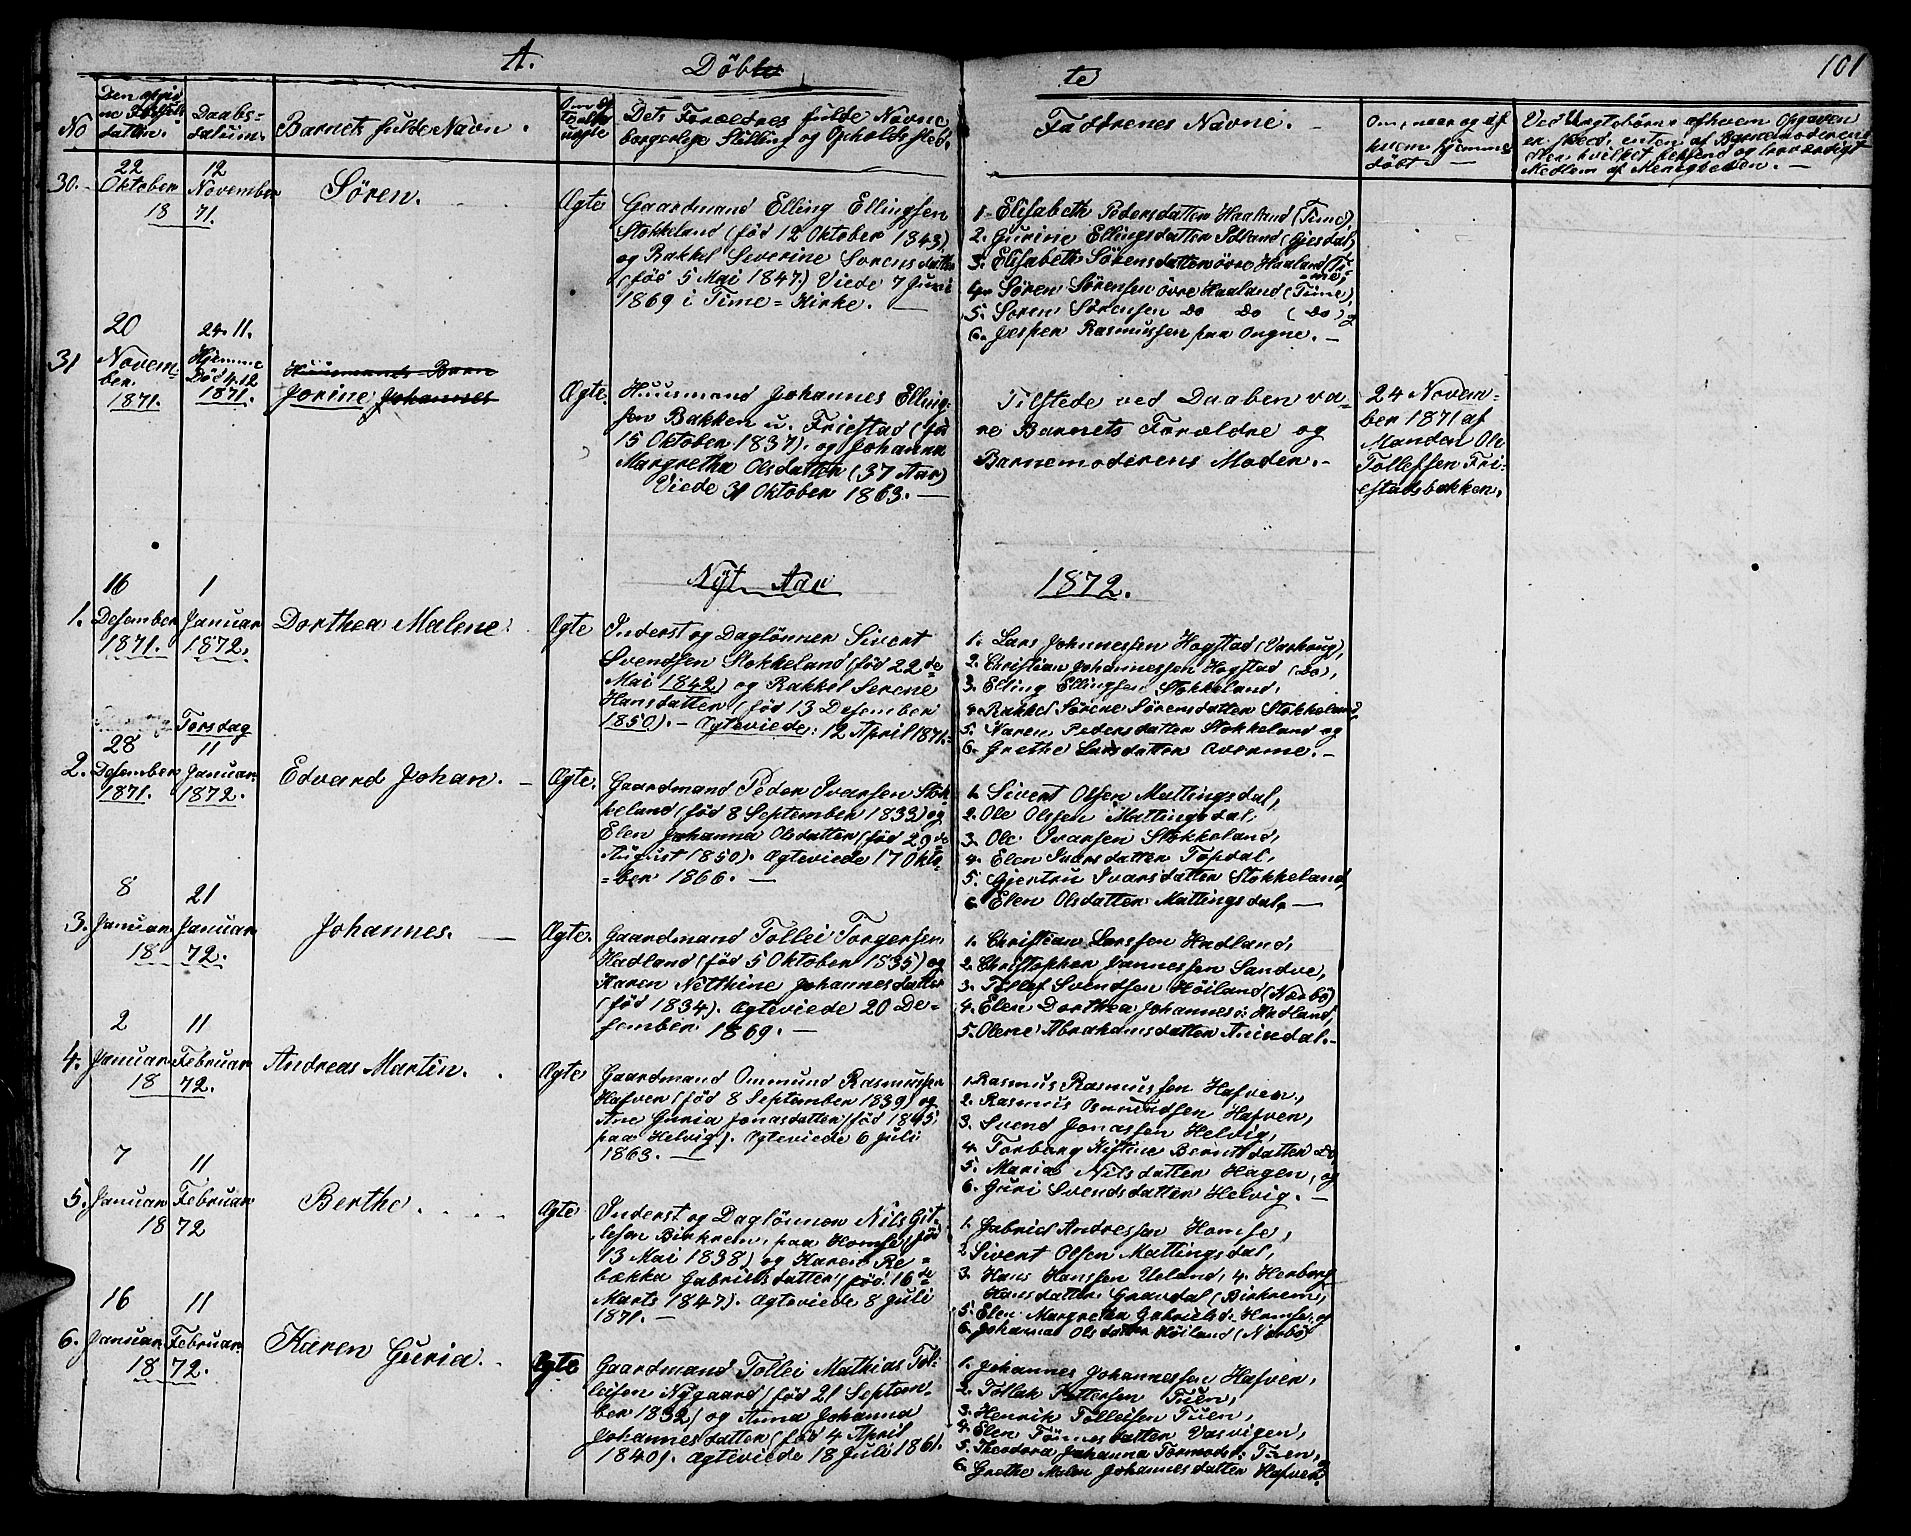 A. Döbte te 101
No
Daabs-
datum.
Barnets fulde Navn.
Dets Forældres fulde Navne
borgerlige Stilling og Opholdssted.
Faddrenes Navne. -
Om, naar og af
hvem hjemme-
döbt -
30. 22 Oktober 18 12 November 71. Sören. Ægte
Gaardmand Elling Ellingsen
Stokkeland (föd 12 Oktober 1843)
og Rakkel Severine Sorensdatter
(föd 5 Mai 1847) Viede 7 Juni
1869 i Time-Kirke. -
1. Elisabeth Pedersdatter Haaland (Time),
2. Gurine Ellingsdatter (Gjesdal,
3. Elisabeth Sörensdatter övre Haaland (Ti-
me,
4. Sören Sörensen övre Haaland (Time),
5. Soren Sörensen Do Do (Do)
6. Jesper Rasmussen paa Ongne. -
31 20 Novem-
ber.
1871. 24. 11.
Hjemme
Död 4.12
1871.
Huusmands Barn
Jorine Johannes
Ægte.
Huusmand Johannes Elling-
sen Bakken u. Friestad (föd
15 Oktober 1837). og Johanna
Margretha Olsdatter (37 Aar)
Viede 31 Oktober 1863. -
Tilstede ved Daaben va-
re Barnets Forældre og
Barnemoderens Moder. -
24 Novem-
ber 1871 af
Manden Ole
Tollefsen Fri-
estadsbakken.
Nyt Aar 1872.
1. 16 Desember
1871. 1 Januar
1872. Dorthea Malene. Ægte
Inderst og Daglönner Sivert
Svendsen Stokkeland (föd 22de
Mai 1842) og Rakkel Serene
Hansdatter (föd 13 Desember
1850). - Ægteviede: 12 April 1871.
1. Lars Johannessen Hogstad (Varhoug),
2. Christian Johannessen Hogstad (Do),
3. Elling Ellingsen Stokkeland,
4. Rakkel Sörene Sörensdatter Stokkeland,
5. Karen Pedersdatter Stokkeland og
6. Grethe Larsdatter
2. 28 Desember
1871. Torsdag
11 Januar
1872. Edvard Johan. - Ægte.
Gaardmand Peder Ivarsen Stok-
keland (föd 8 September 1833) og
Elen Johanna Olsdatter (föd 29de
August 1850). Ægteviede 17 Okto-
-ber 1866. -
1. Sivert Olsen Mattingsdal,
2. Ole Olssen Mattingsdal,
3. Ole Ivarsen Stokkeland,
4. Elen Ivarsdatter Topdal,
5. Gjertru Ivarsdatter Stokkeland,
6. Elen Olsdatter Mattingsdal, -
3. 8 Januar 21 Januar
18 72. Johannes. - Ægte.
Gaardmand Tollei Torgersen
Hadland (föd 5 Oktober 1835) og
Karen Netthine Johannesdatter
(föd 1834). Ægteviede 20 De-
sember 1869. -
1. Christian Larssen Hadland,
2. Christopher Jannessen Sandve,
3. Tollef Svendsen Höiland (Nærbö)
4. Elen Dorthea Johannesd. Hadland,
5. Olene Abrahamsdatter
4. 2 Januar 11 Februar
18 72. Andreas Martin. Ægte
Gaardmand Ommund Rasmussen
Hafven (föd 8 September 1839) og
Ane Guria Jonasdatter (föd 1845
paa Helvig). Ægteviede 6 Juli
1863. -
1. Rasmus Rasmussen Hafven,
2. Rasmus Osmundsen Hafven,
3. Svend Jonassen Helvig,
4. Torborg Kistine Berntsdatter Do,
5. Maria Nilsdatter Hagen, og
6. Guri Svendsdatter Helvig. -
5. 7 Januar 11 Februar
18 72 Berthe. Ægte
Inderst og Daglönner Nils Git-
lesen Birkrem, paa Homse (föd
13 Mai 1838) og Karen Re-
bækka Gabrielsdatter (föd 16de
Marts 1847). Ægteviede 8 Juli
1871. -
1. Gabriel Andressen Homse,
2 Sivert Olsen Mattingsdal,
3. Hans Hanssen Ueland, 4. Herborg
Hansdatter Gravdal (Birkrem,
5. Elen Margretha Gabrielsd. Homse, og
6. Johanna Olsdatter Höiland (Nærbö)
6. 16 Januar 11 Februar
18 72. Karen Guria. - Ægte
Gaardmand Tollei Mathias Tol-
leisen Nygaard (föd 21 Septem-
ber 1832) og Anna Johanna
Johannesdatter (föd 4 April
1840). Ægteviede 18 Juli 1861.
1. Johannes Johannessen Hafven,
2. Tollak Pettersen Tuen,
3. Henrik Tolleisen Tuen,
4. Elen Tönnesdatter Vasvigen,
5. Theodora Johanna Tormodsd. Tuen, og
6. Grethe Malen Johannesdatter Hafven.